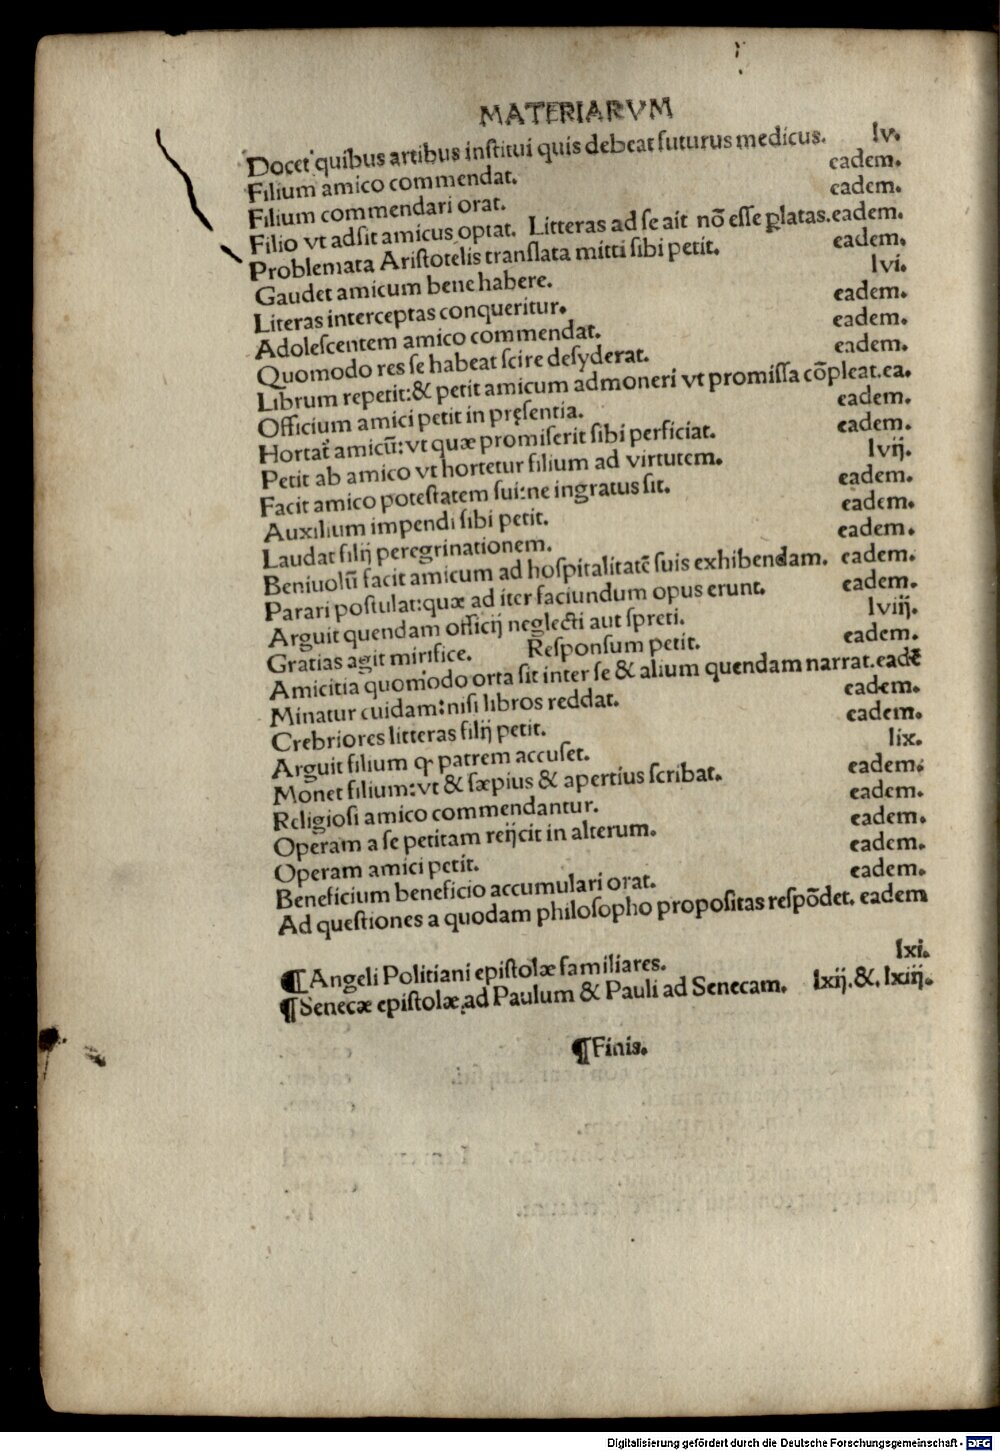 MATERIARVM
Docet quibus artibus inſtitui quis debeat futurus medicus. lv.
Filium amico commendat. eadem.
Filium commendari orat. eadem.
Filio vt adſit amicus optat. Litteras ad ſe ait nō eſſe ꝑlatas. eadem.
Problemata Ariſtotelis tranſlata mitti ſibi petit. eadem.
Gaudet amicum bene habere. lvi.
Literas interceptas conqueritur. eadem.
Adoleſcentem amico commendat. eadem.
Quomodo res ſe habeat ſcire deſyderat. eadem.
Librum repetit:& petit amicum admoneri vt promiſſa cōpleat. ea.
Officium amici petit in pręſentia. eadem.
Hortat̃ amicū: vt quæ promiſerit ſibi perficiat. eadem.
Petit ab amico vt hortetur filium ad virtutem. lvij.
Facit amico poteſtatem ſui:ne ingratus ſit. eadem.
Auxilium impendi ſibi petit. eadem.
Laudat filij peregrinationem. eadem.
Beniuolū facit amicum ad hoſpitalitatē ſuis exhibendam. eadem.
Parari poſtulat:quæ ad iter faciundum opus erunt. eadem.
Arguit quendam officij neglecti aut ſpreti. lviij.
Gratias agit mirifice. Reſponſum petit. eadem.
Amicitia quomodo orta ſit inter ſe & alium quendam narrat. eadē
Minatur cuidam: niſi libros reddat. eadem.
Crebriores litteras filij petit. eadem.
Arguit filium ꝙ patrem accuſet. lix.
Monet filium: vt & ſæpius & apertius ſcribat. eadem.
Religioſi amico commendantur. eadem.
Operam a ſe petitam reijcit in alterum. eadem.
Operam amici petit. eadem.
Beneficium beneficio accumulari orat. eadem.
Ad queſtiones a quodam philoſopho propoſitas reſpōdet. eadem
¶ Angeli Politiani epiſtolæ familiares. lxi.
¶ Senecæ epiſtolæ ad Paulum & Pauli ad Senecam. lxij. &. lxiij.
¶ Finis.
Digitalisierung gefördert durch die Deutsche Forschungsgemeinschaft - DFG